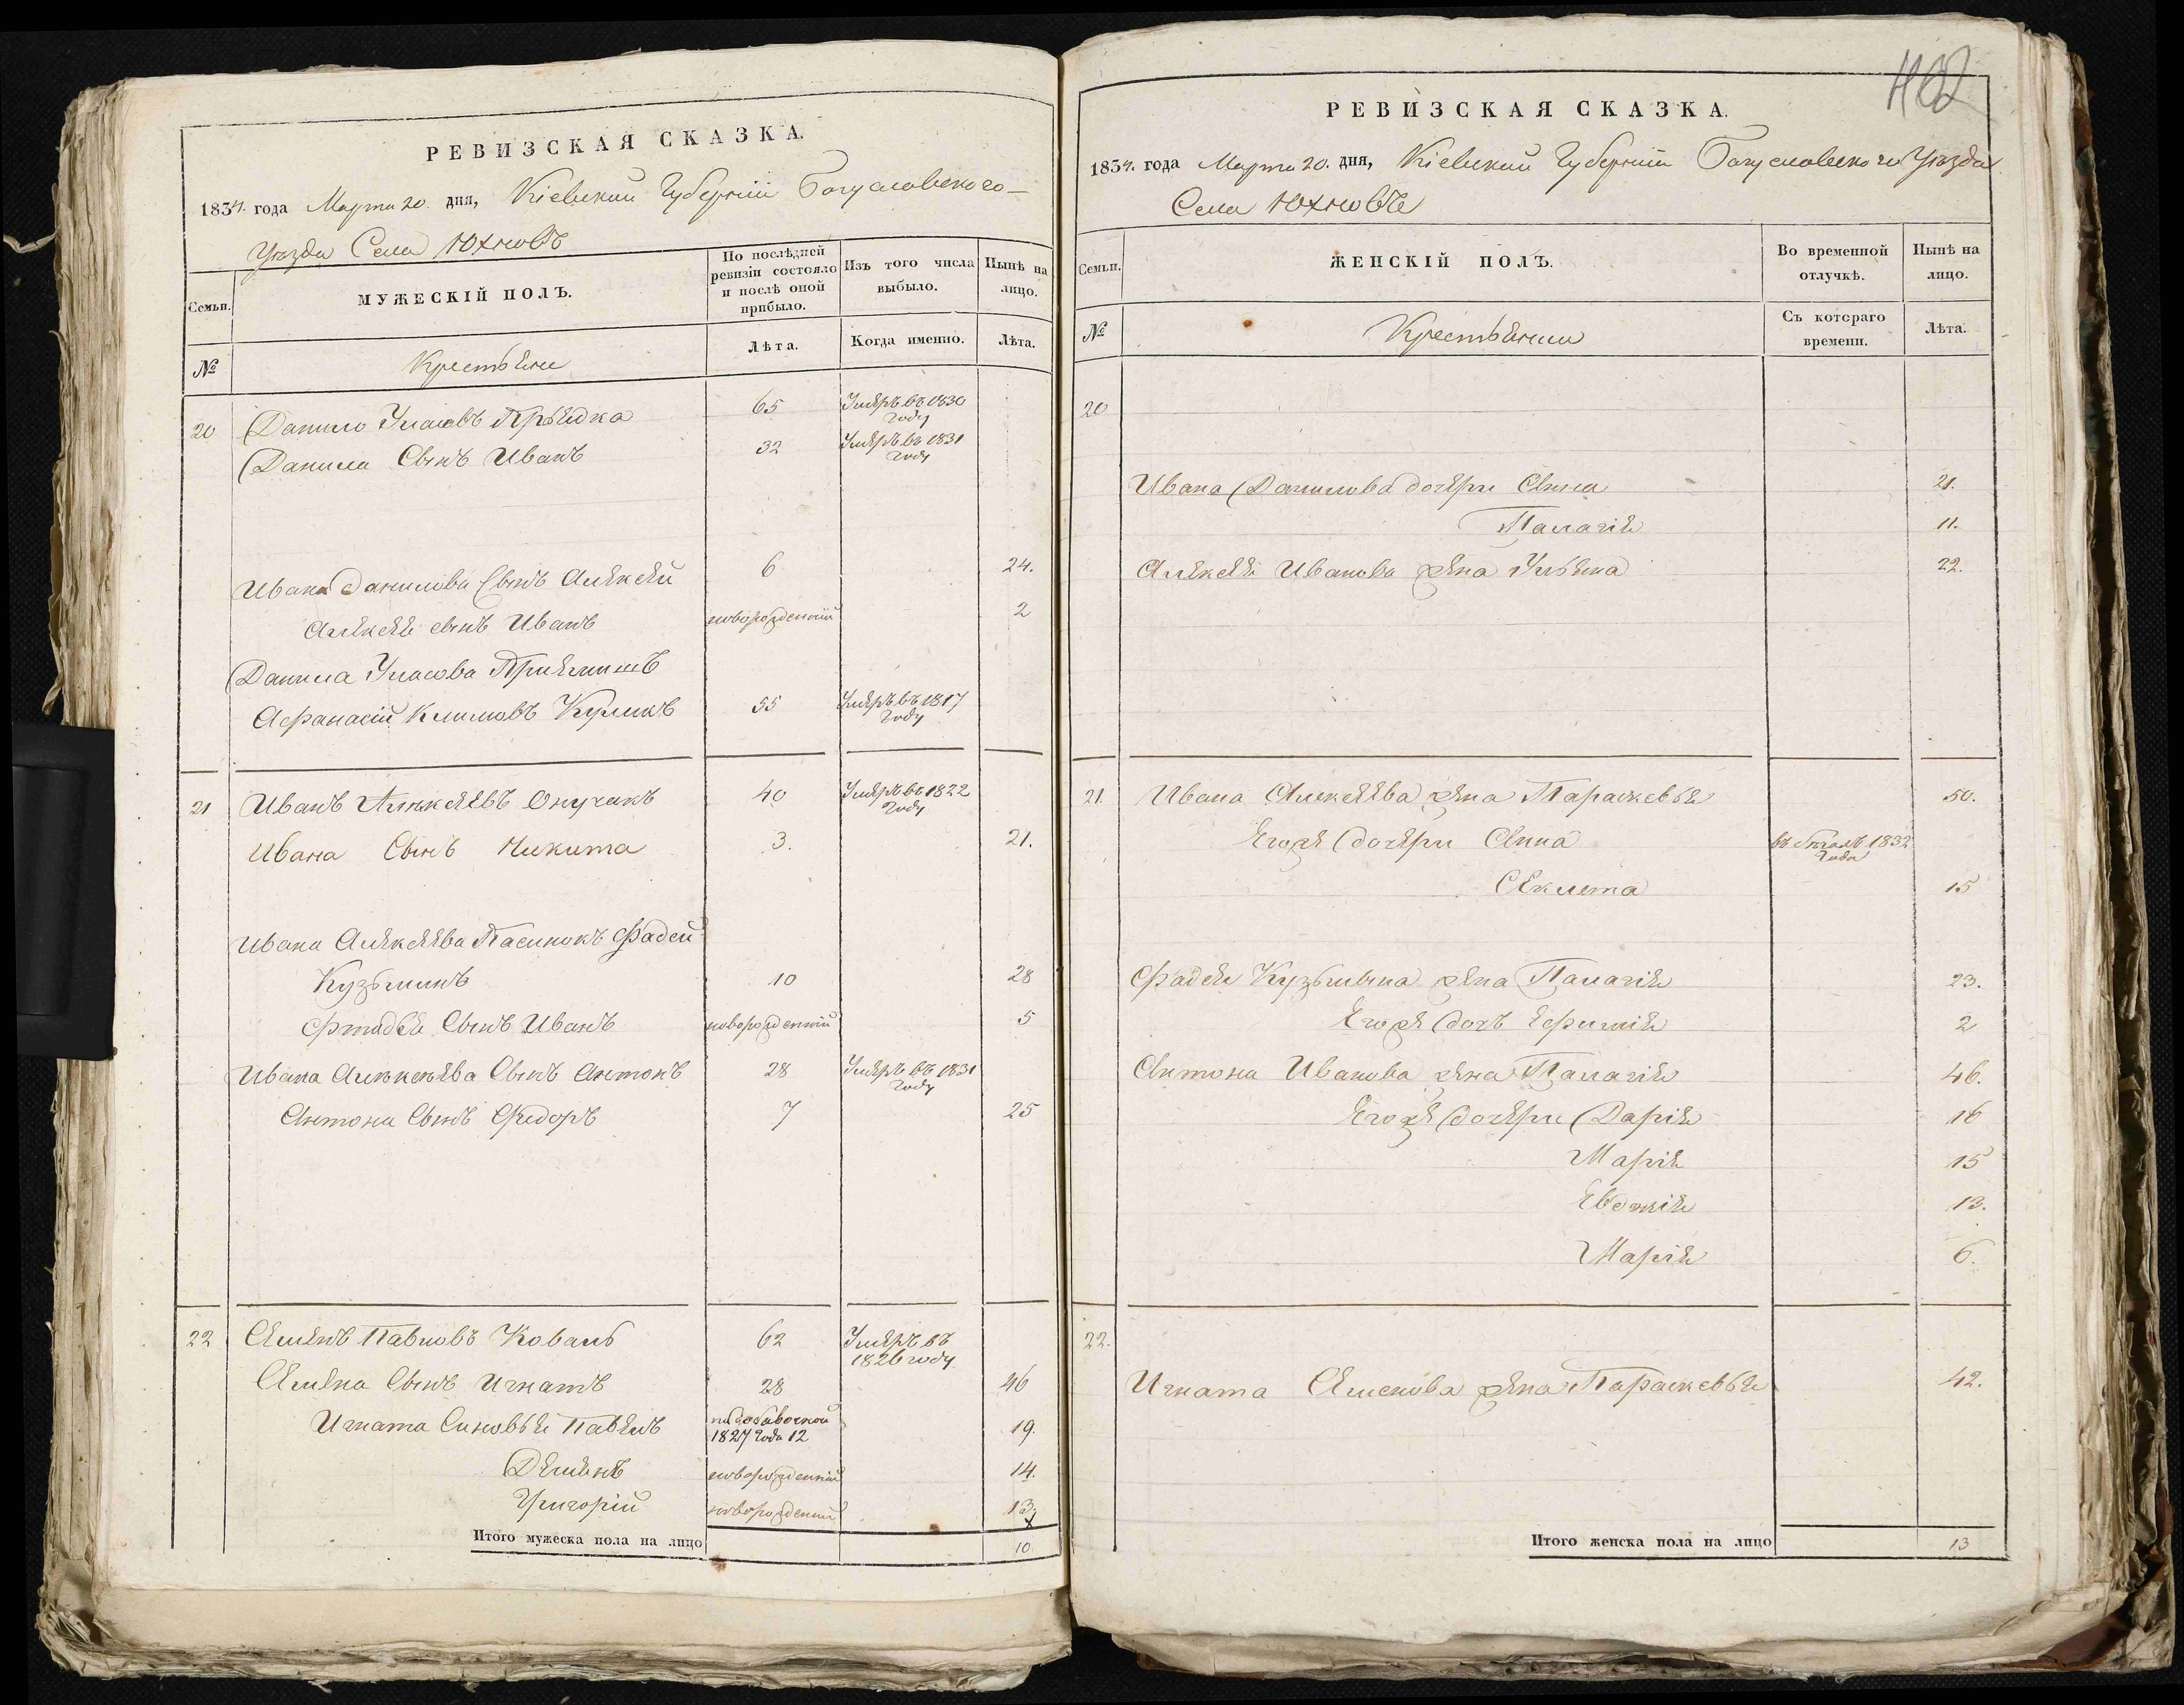 РЕВИЗСКАЯ СКАЗКА.
1834. года Марта 20. дня, Кіевской Губерніи Богуславского
Уезда Села Юхновъ
Семьи.
МУЖЕСКІЙ ПОЛЪ.
По послѣдней ревизіи состояло и послѣ оной прибыло.
Изъ того числа выбыло.
Нынѣ на лицо.
№
Крестьяне
Лѣта.
Когда именно.
Лѣта.
20 Данило Уласовъ Прыдка 65 Умеръ въ 1830 году
Данила Сынъ Иванъ 32 Умеръ въ 1831 году
Ивана Данилова Сынъ Алексей 6 24.
Алексея сынъ Иванъ новорожденній 2
Данила Уласова Приемишъ
Афанасій Климовъ Куликъ 55 Умеръ въ 1817 году
21 Иванъ Алексеевъ Онучакъ 40 Умеръ въ 1822 году
Ивана Сынъ Никита 3. 21.
Ивана Алексеева Пасинокъ Фадей
Кузьминъ 10 28
Фтадея Сынъ Иванъ новорожденній 5
Ивана Алексеева Сынъ Антонъ 28 Умеръ въ 1831 году
Антона Сынъ Федоръ 7 25
22 Семенъ Павловъ Коваль 62 Умеръ въ 1826 году
Семена Сынъ Игнатъ 28 46
Игната Сыновья Павелъ по добавочной 1827 года 12 19.
Деменъ новорожденній 14.
Григорій новорожденній 13
Итого мужеска пола на лицо 10
402
РЕВИЗСКАЯ СКАЗКА.
1834. года Марта 20. дня, Кіевской Губерніи Богуславского Уезда
Села Юхновъ
Семьи.
ЖЕНСКІЙ ПОЛЪ.
Во временной отлучкѣ.
Нынѣ на лицо.
№
Крестьянки
Съ котораго времени.
Лѣта.
20
Ивана Данилова дочери Анна 21.
Палагія 11.
Алексея Иванова жена Ульяна 22.
21. Ивана Алексеева жена Параскевья 50.
Егоже дочери Анна въ бегахъ 1832 года
Секлета 15
Фадея Кузьмина жена Палагія 23.
Егоже дочь Ефимія 2
Антона Иванова жена Палагія 46.
Егоже дочери Дарія 16
Марія 15
Евдокія 13.
Марія 6.
22.
Игната Семенова жена Параскевья 42.
Итого женска пола на лицо 13